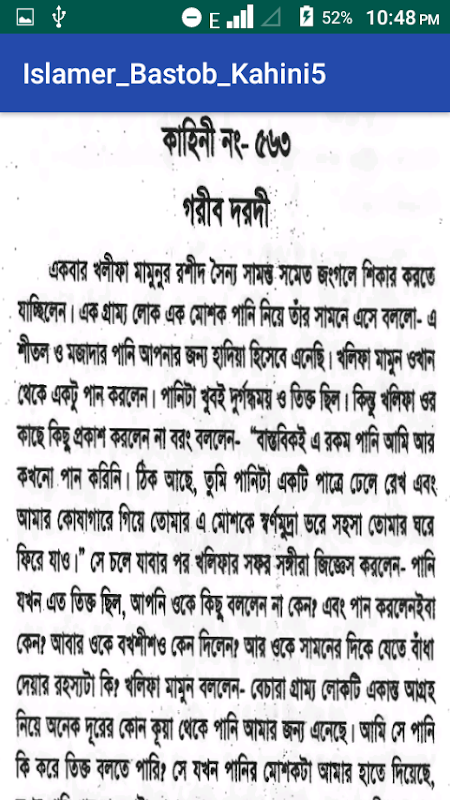 E 52% 10:48 PM
Islamer_Bastob_Kahini5
কাহিনী নং- ৫৬৩
গরীব দরদী
একবার খলীফা মামুনুর রশীদ সৈন্য সামন্ত সমেত জংগলে শিকার করতে
যাচ্ছিলেন। এক গ্রাম্য লোক এক মোশক পানি নিয়ে তাঁর সামনে এসে বললো- এ
শীতল ও মজাদার পানি আপনার জন্য হাদিয়া হিসেবে এনেছি। খলিফা মামুন ওখান
থেকে একটু পান করলেন। পানিটা খুবই দুর্গন্ধময় ও তিক্ত ছিল। কিন্তু খলিফা ওর
কাছে কিছু প্রকাশ করলেন না বরং বললেন- “বাস্তবিকই এ রকম পানি আমি আর
কখনো পান করিনি। ঠিক আছে, তুমি পানিটা একটি পাত্রে ঢেলে রেখ এবং
আমার কোষাগারে গিয়ে তোমার এ মোশকে স্বর্ণমুদ্রা ভরে সহসা তোমার ঘরে
ফিরে যাও।” সে চলে যাবার পর খলিফার সফর সঙ্গীরা জিজ্ঞেস করলেন- পানি
যখন এত তিক্ত ছিল, আপনি ওকে কিছু বললেন না কেন? এবং পান করলেনইবা
কেন? আবার ওকে বখশীশও কেন দিলেন? আর ওকে সামনের দিকে যেতে বাঁধা
দেয়ার রহস্যটা কি? খলিফা মামুন বললেন- বেচারা গ্রাম্য লোকটি একান্ত আগ্রহ
নিয়ে অনেক দূরের কোন কূয়া থেকে পানি আমার জন্য এনেছে। আমি সে পানি
কি করে তিক্ত বলতে পারি? সে যখন পানির মোশকটা আমার হাতে দিয়েছে,